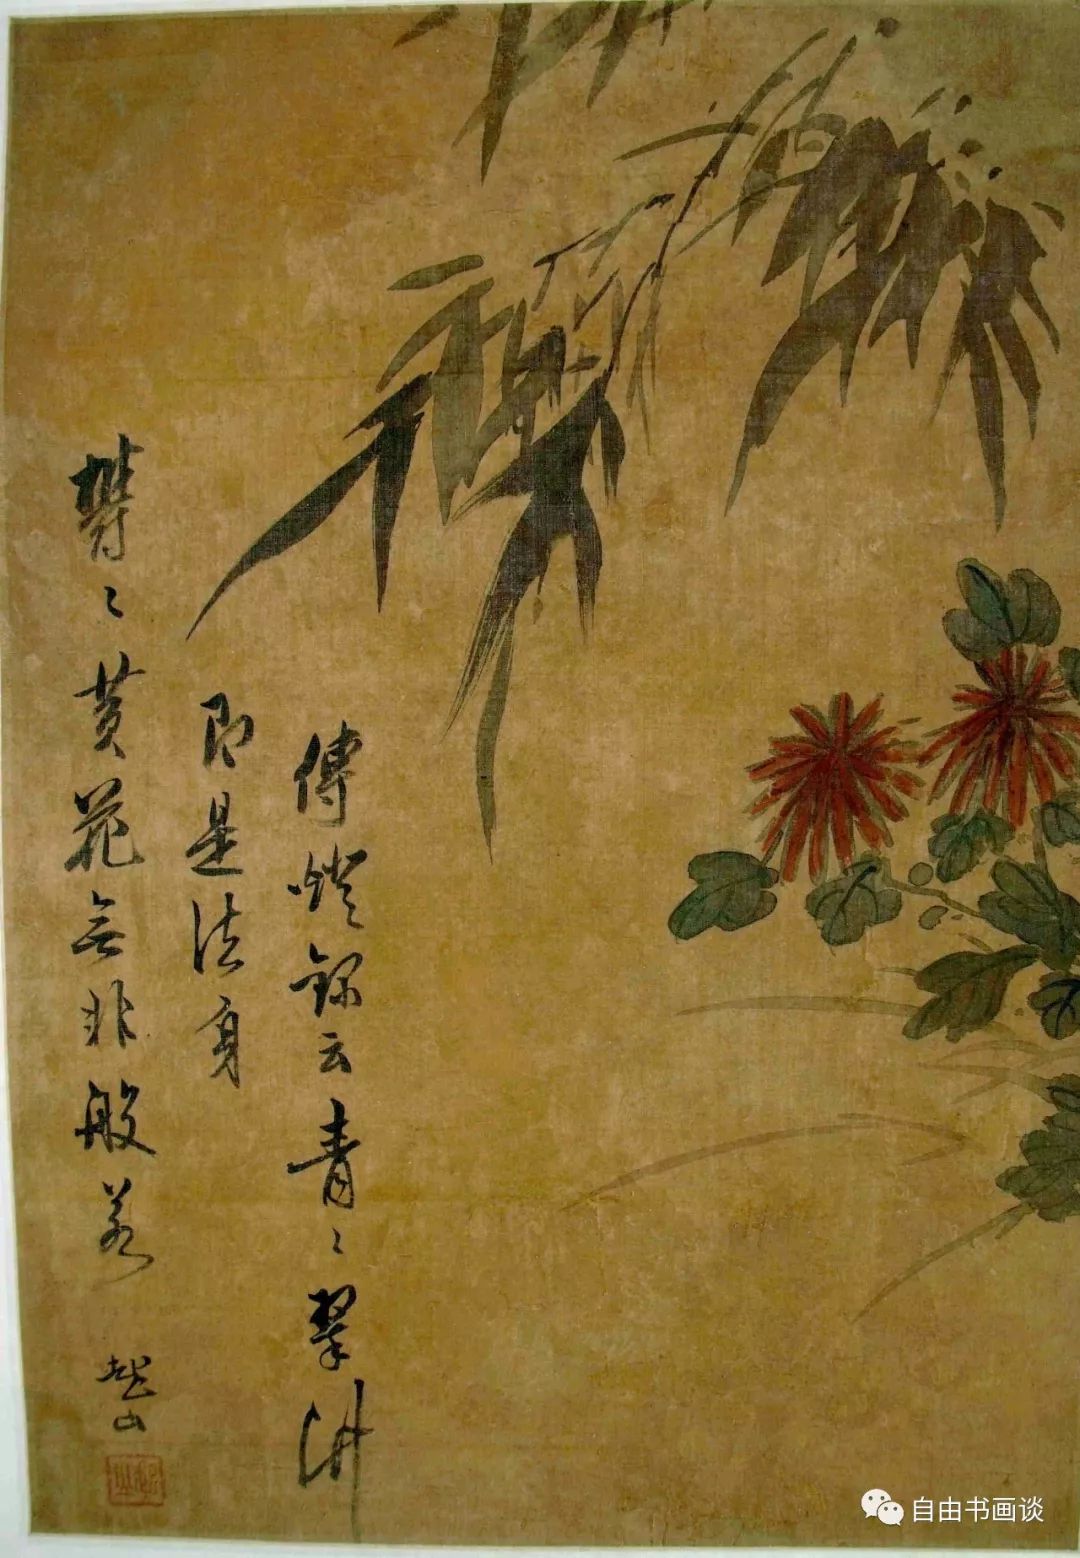 傳燈錄云青〻翠竹
即是法身
欝〻黄花無非般若
山
自由书画谈